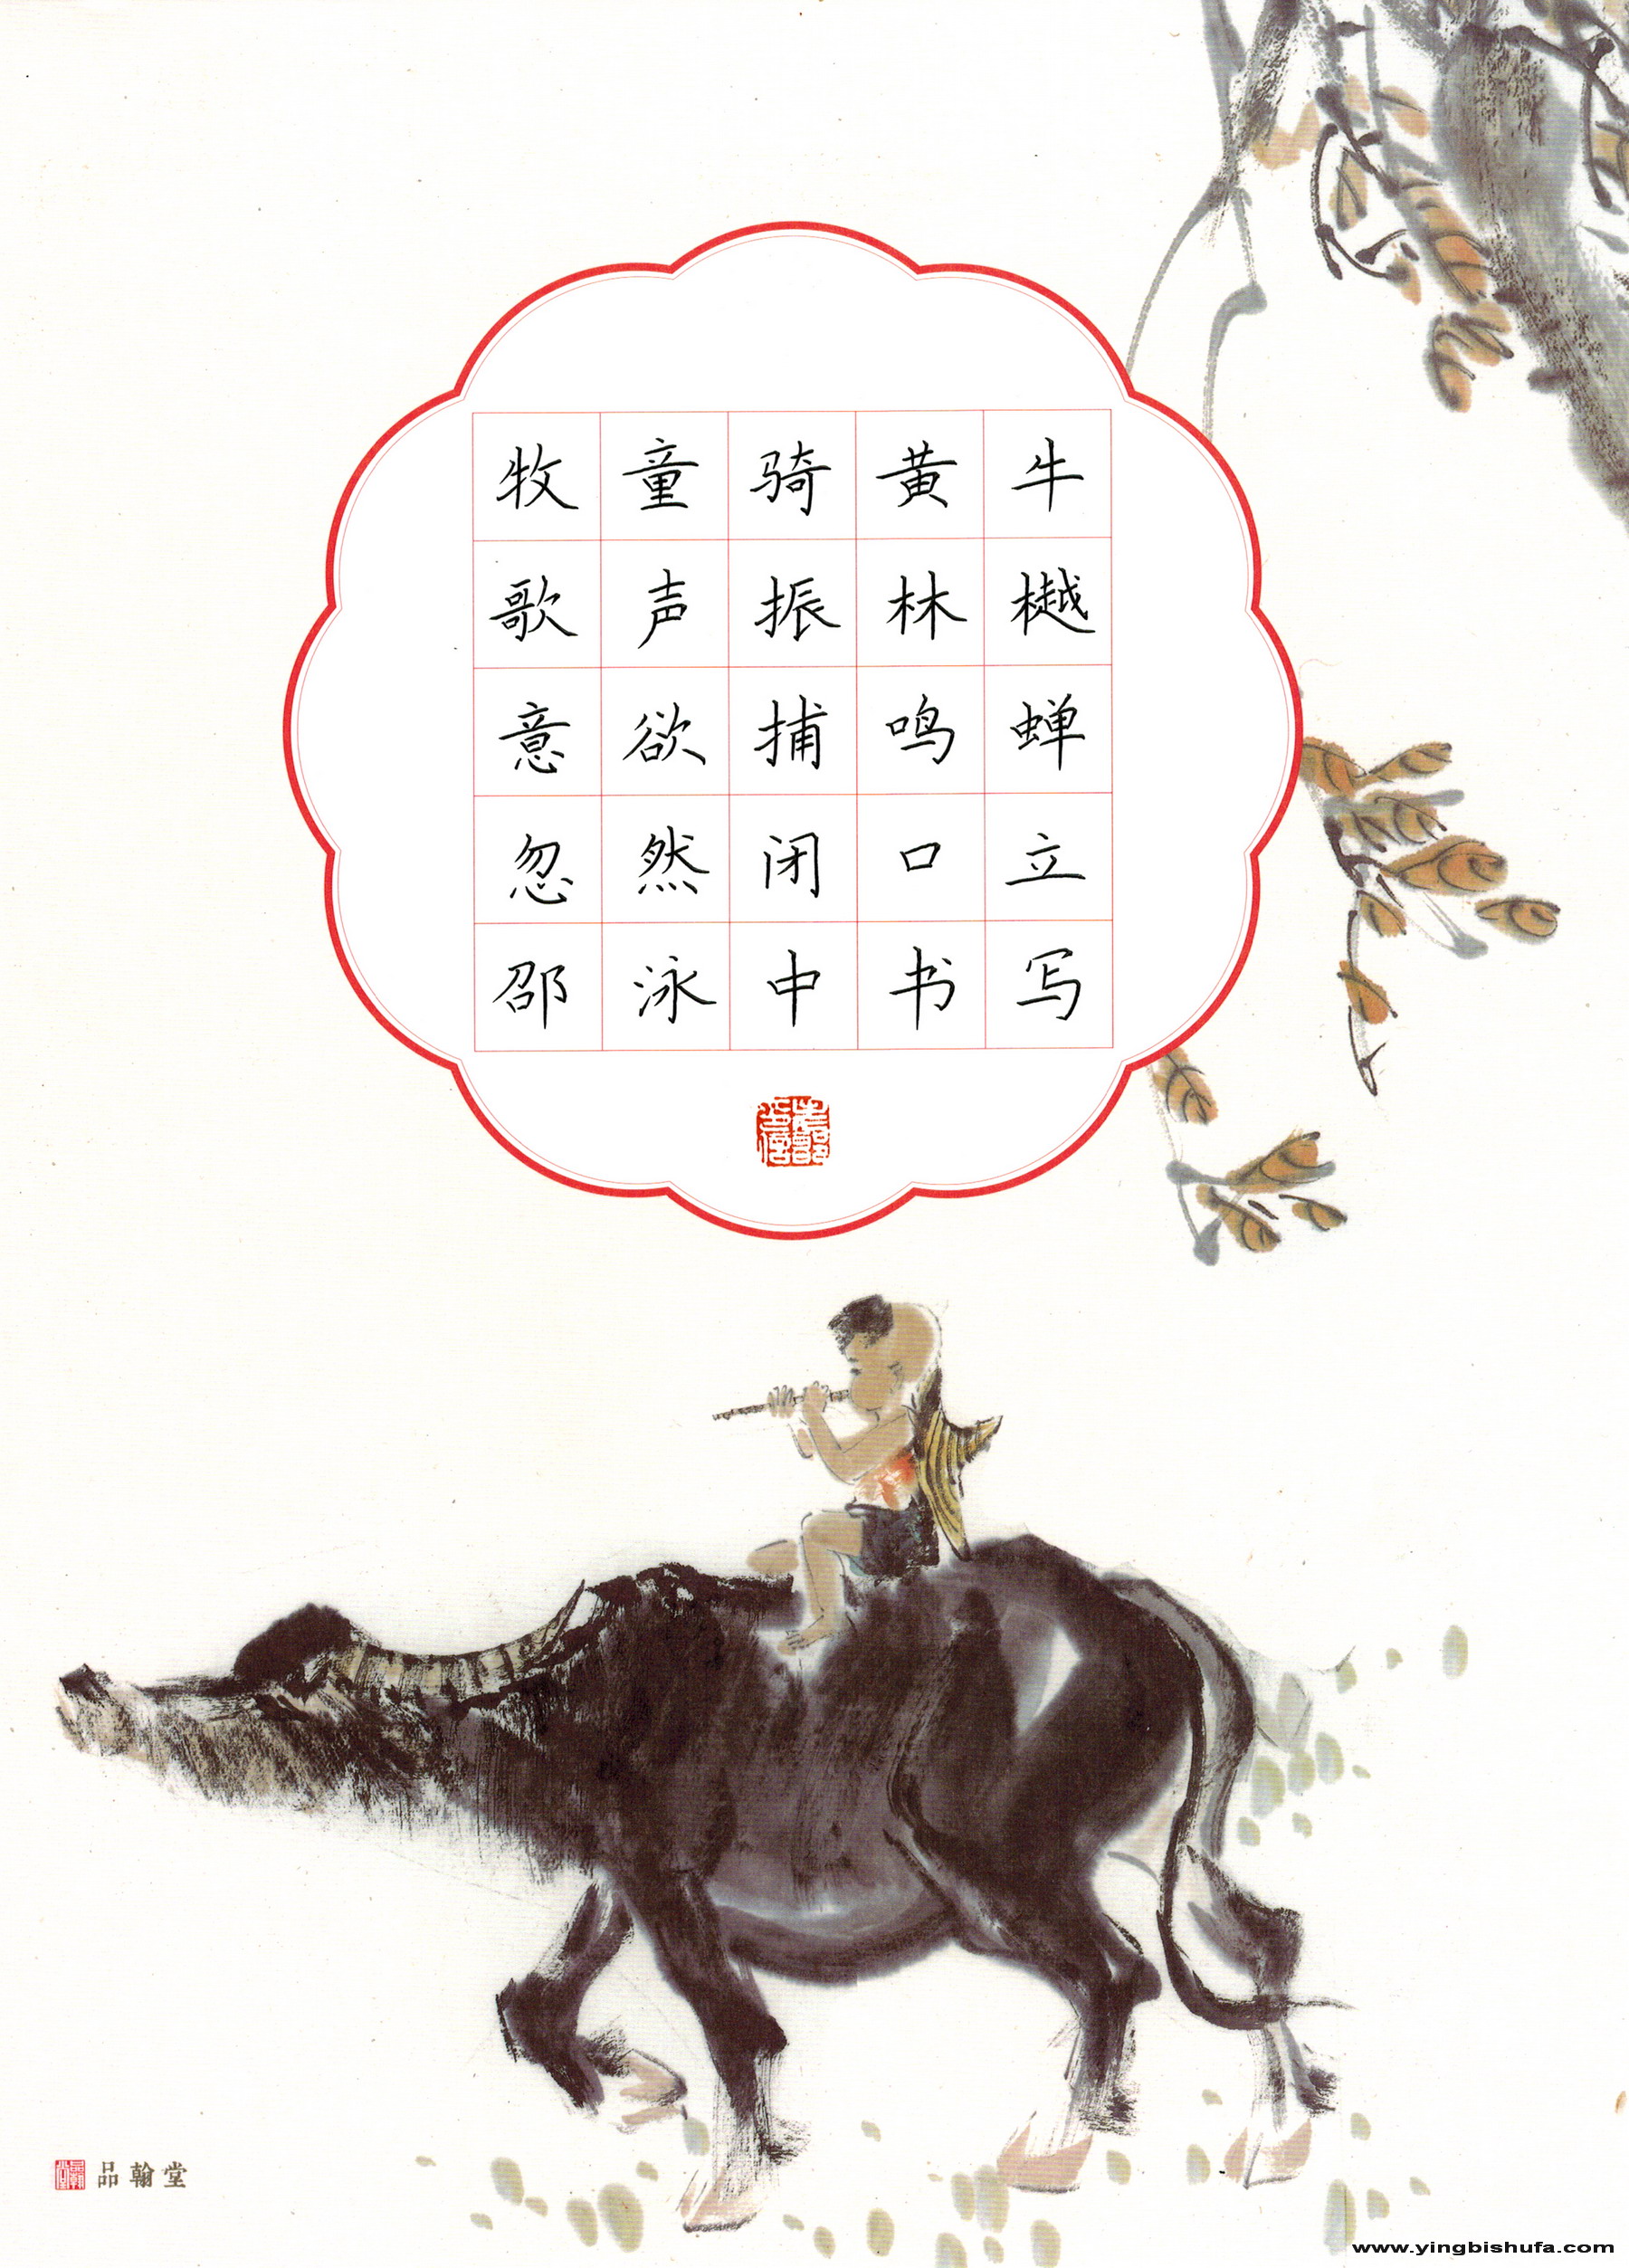 牧童骑黄牛
歌声振林樾
意欲捕鸣蝉
忽然闭口立
邵泳中书写
品翰堂
www.yingbishufa.com